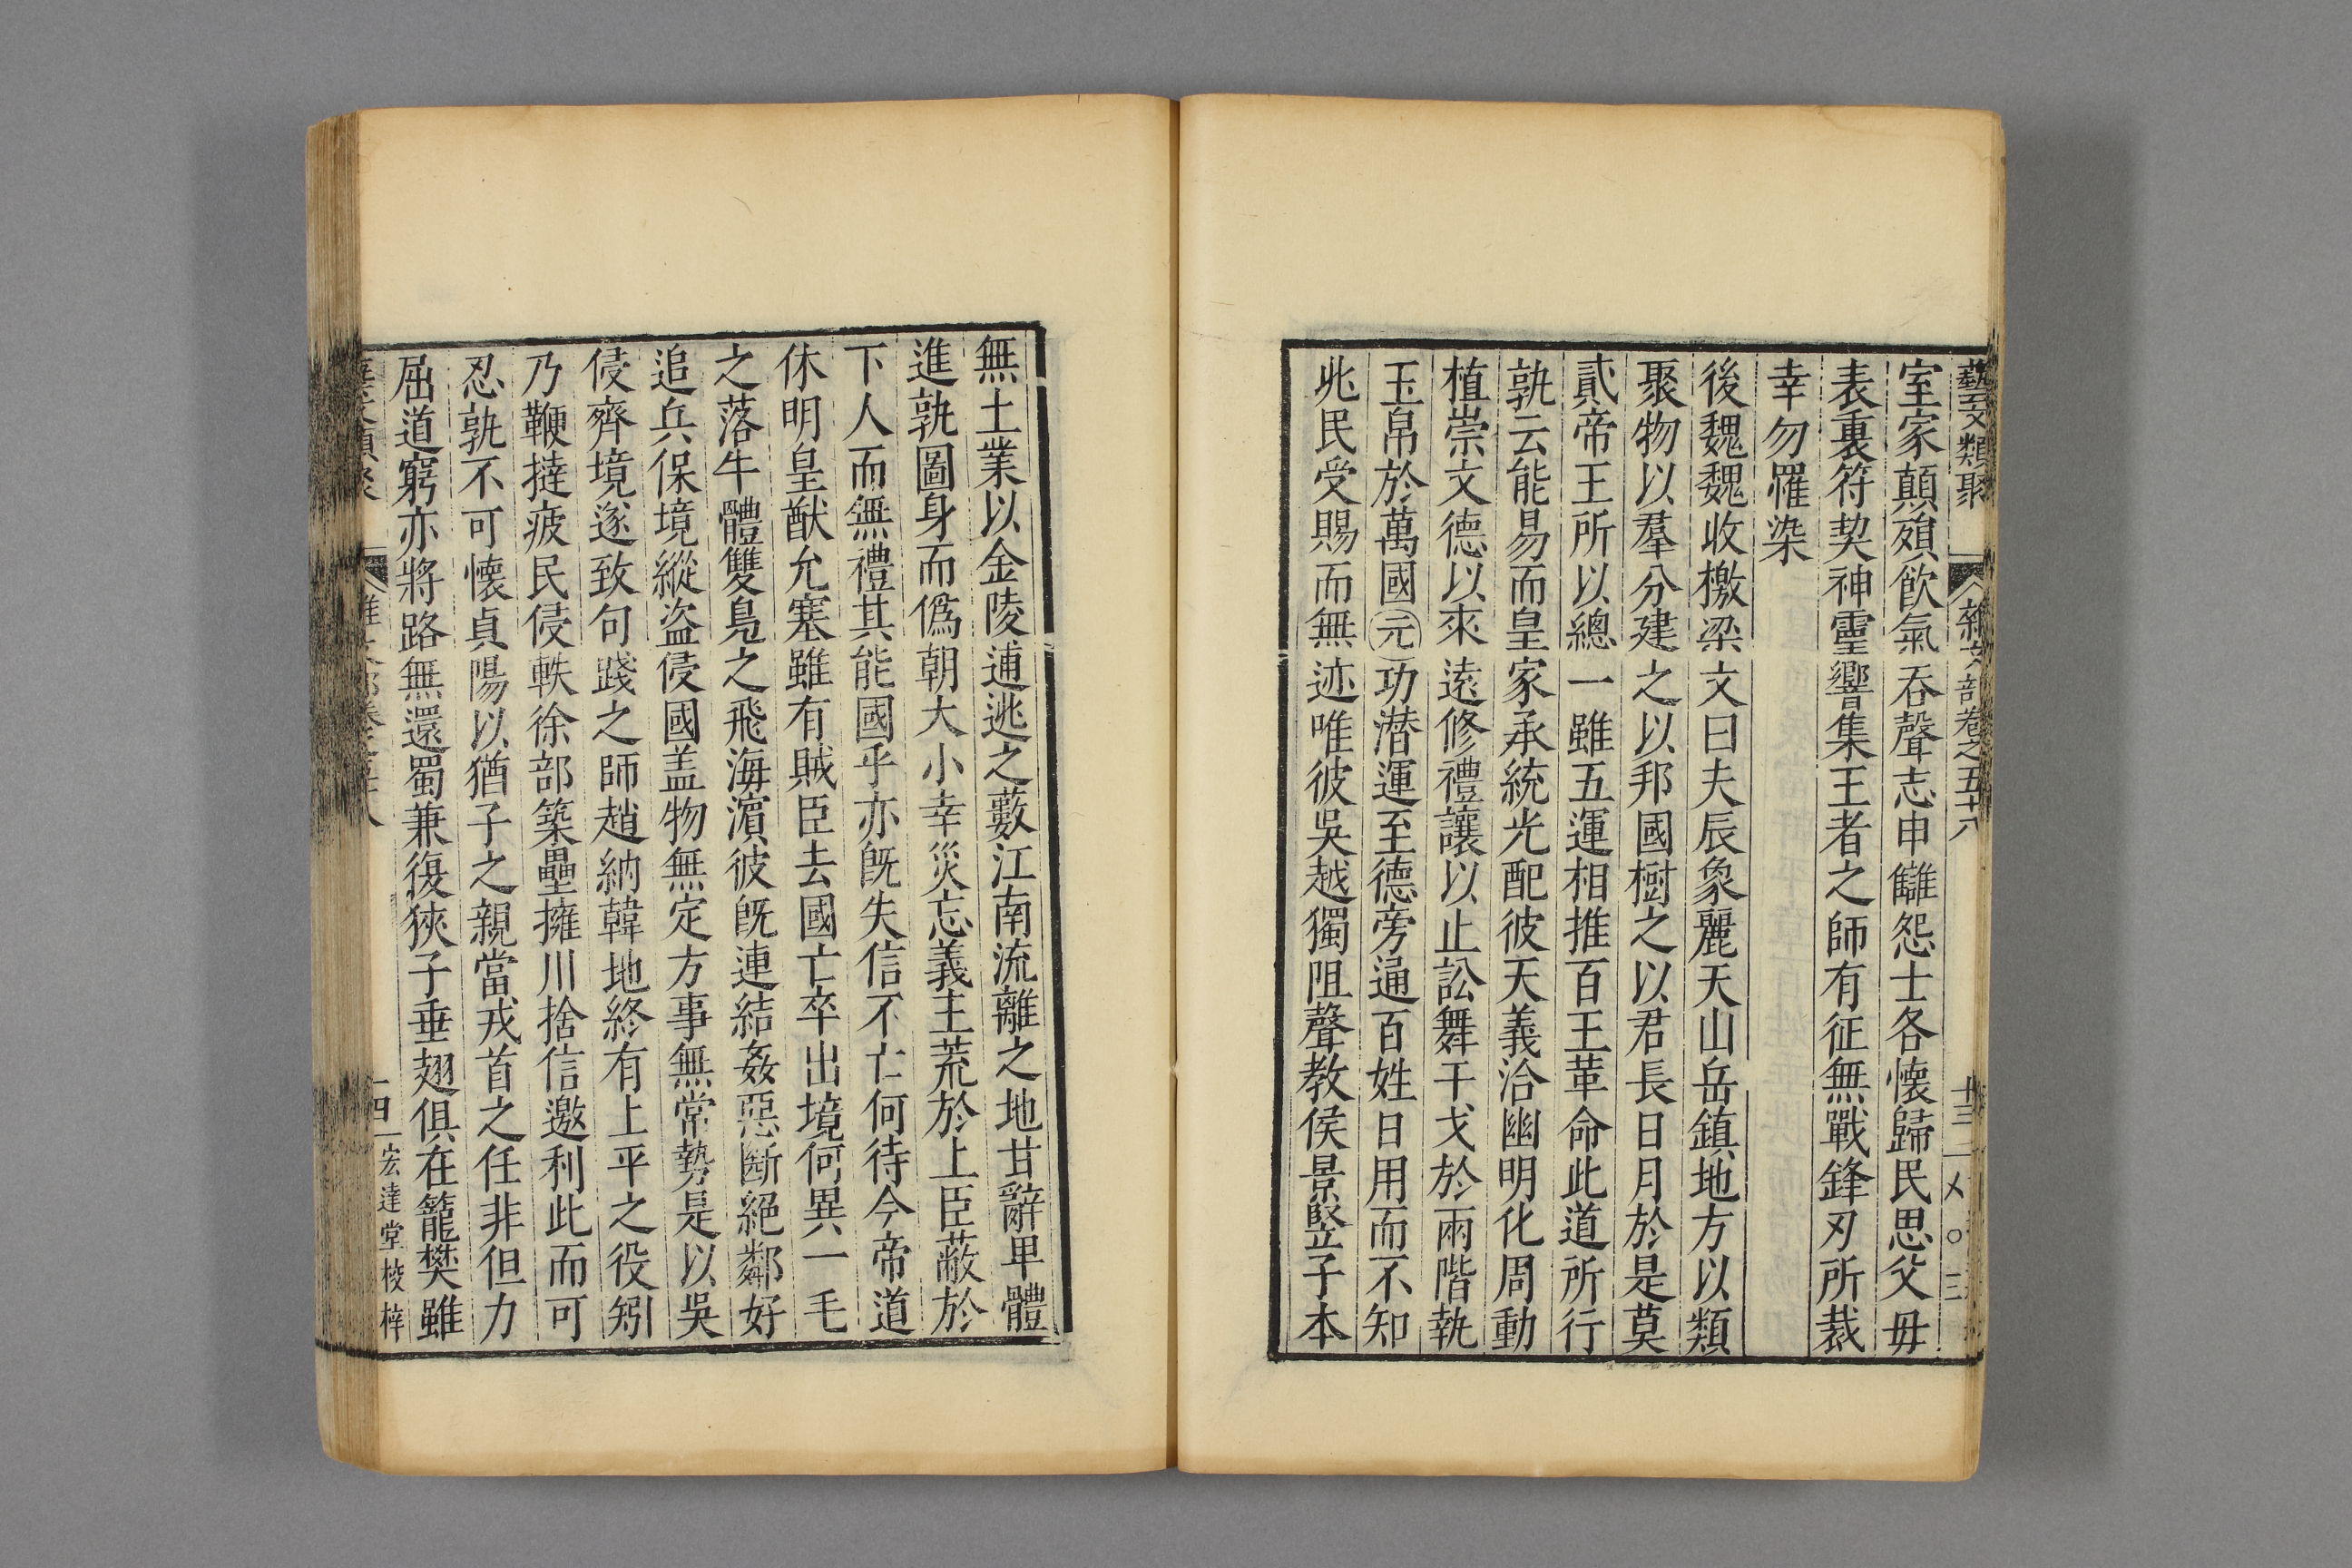 藝文類聚 雜文部卷之五十八 十三
室家顛殞飲氣吞聲志申讎怨士各懷歸民思父毋
表裏符契神靈響集王者之師有征無戰鋒刃所裁
幸勿罹染
後魏魏收檄梁文曰夫辰象麗天山岳鎮地方以類
聚物以羣分建之以邦國樹之以君長日月於是莫
貳帝王所以總一雖五運相推百王革命此道所行
孰云能易而皇家承統光配彼天義洽幽明化周動
植崇文德以來遠修禮讓以止訟舞干戈於兩階執
玉帛於萬國元功潛運至德旁通百姓日用而不知
兆民受賜而無迹唯彼吳越獨阻聲教侯景豎子本
無土業以金陵逋逃之藪江南流離之地甘辭卑體
進孰圖身而僞朝大小幸災忘義主荒於上臣蔽於
下人而無禮其能國乎亦旣失信不亡何待今帝道
休明皇猷允塞雖有賊臣去國亡卒出境何異一毛
之落牛體雙鳧之飛海濵彼旣連結姦惡斷絕鄰好
追兵保境縱盜侵國盖物無定方事無常勢是以吳
侵齊境遂致句踐之師趙納韓地終有上平之役矧
乃鞭撻疲民侵軼徐部築壘擁川捨信邀利此而可
忍孰不可懷貞陽以猶子之親當戎首之任非但力
屈道窮亦將路無還蜀兼復狹子垂翅俱在籠樊雖
宏達堂校梓